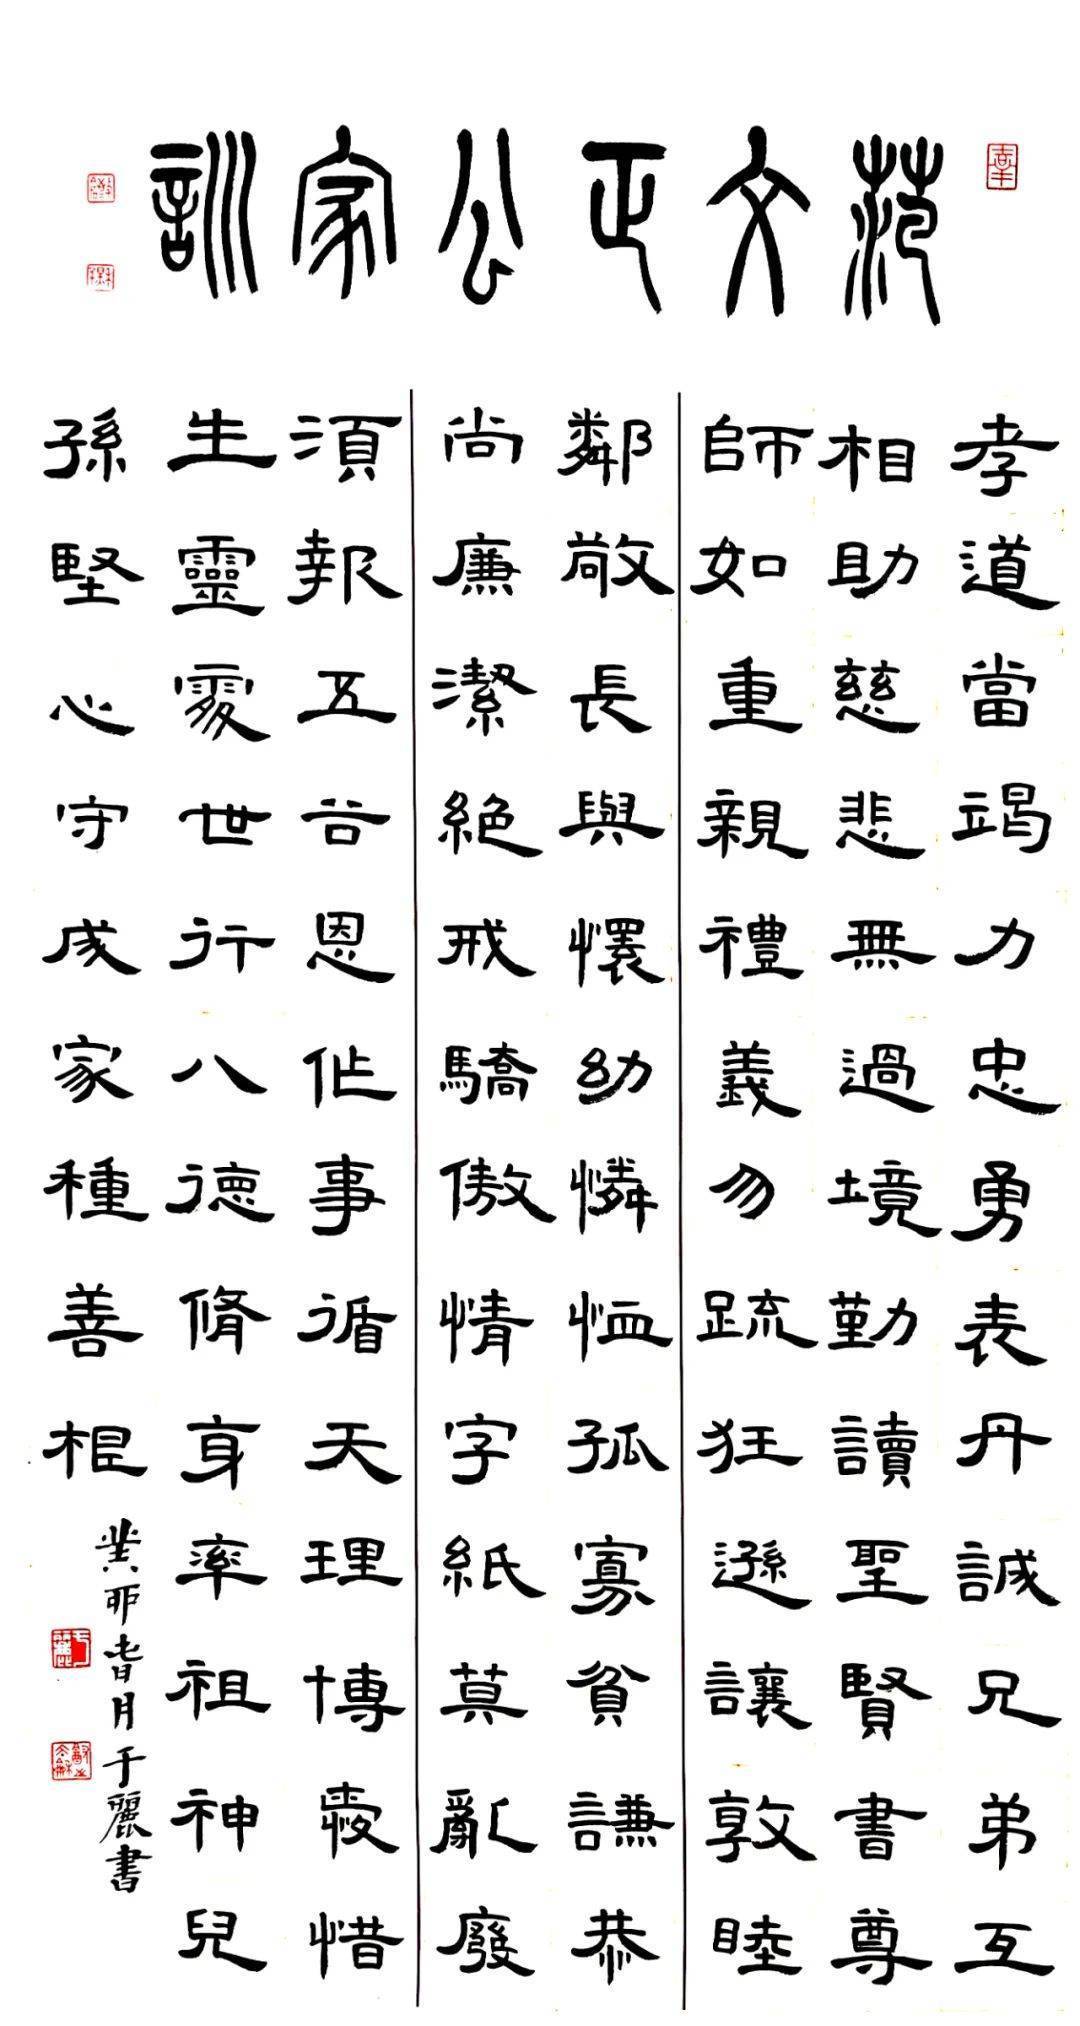 范文正公家訓
孝道當竭力忠勇表丹誠兄弟互
相助慈悲無過境勤讀聖賢書尊
師如重親禮義勿疏狂遜讓敦睦
鄰敬長與懷幼憐恤孤寡貧謙恭
尚廉潔絕戒驕傲情字紙莫亂廢
須報五谷恩作事循天理博愛惜
生靈處世行八德脩身率祖神兒
孫堅心守成家種善根
癸卯春月于麗書